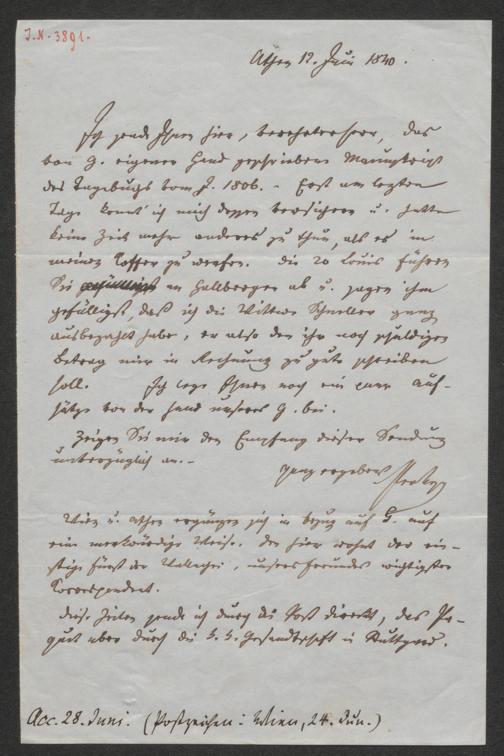 J.N. 3891.
Athen 12. Juni 1840.
Ich sende Ihnen hier, verehrter Herr, das
von G. eigener Hand geschriebene Manuskript
des Tagebuchs vom J. 1806. - Erst am letzten
Tage konnt' ich mich dessen versichern u. hatte
keine Zeit mehr anderes zu thun, als es in
meinen Koffer zu werfen. Die 20 Louis führen
Sie an Hallberger ab u. sagen ihm
gefälligst, daß ich die Wittwe Schneller ganz
ausbezahlt habe, er also den ihr noch schuldigen
Betrag mir in Rechnung zu gute schreiben
soll. Ich lege Ihnen noch ein paar Auf-
sätze von der Hand unseres G. bei.
Zeigen Sie mir den Empfang dieser Sendung
unverzüglich an. -
ganz ergebenst Prokesch
Wien u. Athen ergänzen sich in bezug auf G. auf
eine merkwürdige Weise. Denn hier wohnt der ein-
stige Fürst der Walachei, unseres Freundes wichtigster
Correspondent.
Diese Zeilen sende ich durch die Post direkt, das Pa-
quet aber durch die k. k. Gesandtschaft in Stuttgard.
Acc. 28. Juni. (Postzeichen: Wien, 24. Jun.)